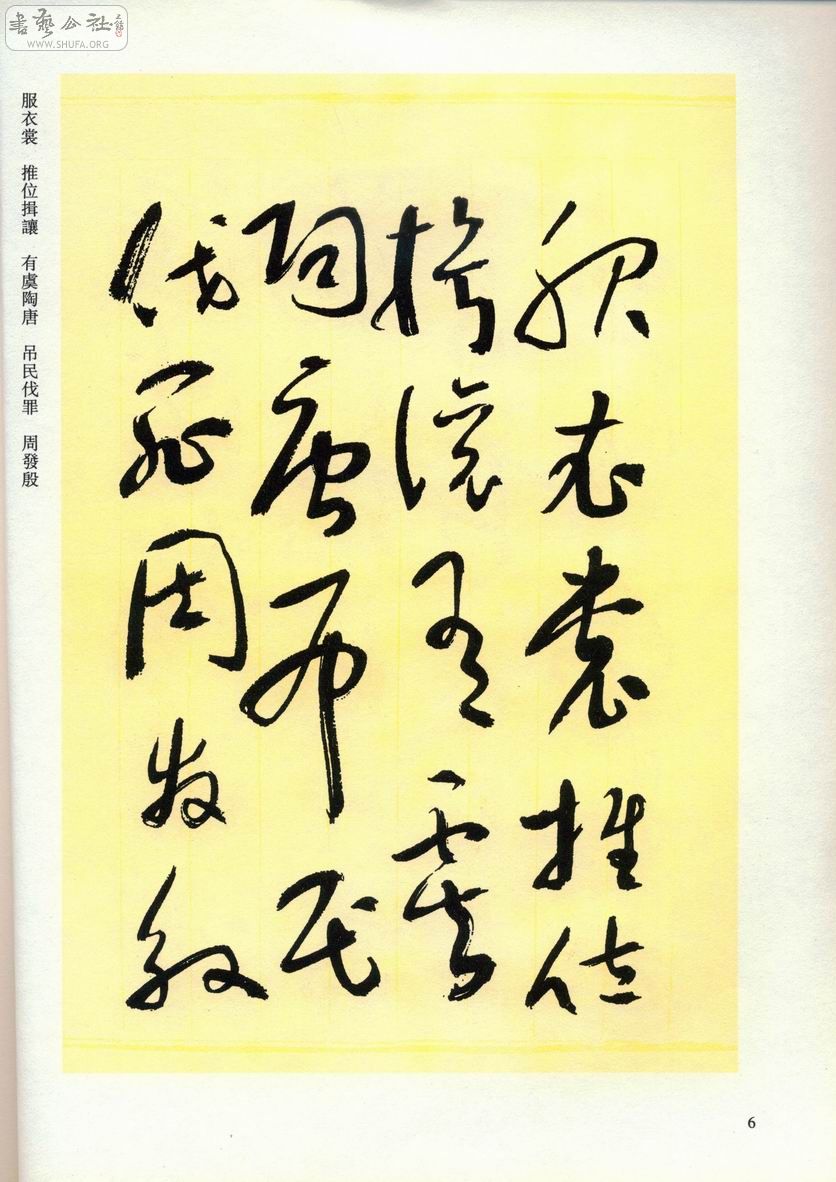 書藝公社
WWW.SHUFA.ORG
服衣裳推位
揖讓有虞
陶唐吊民
伐罪周發殷
服衣裳 推位揖讓 有虞陶唐 吊民伐罪 周發殷
6